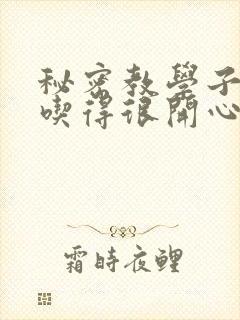 秘密教學子
喫得很開心
霜時夜鯉